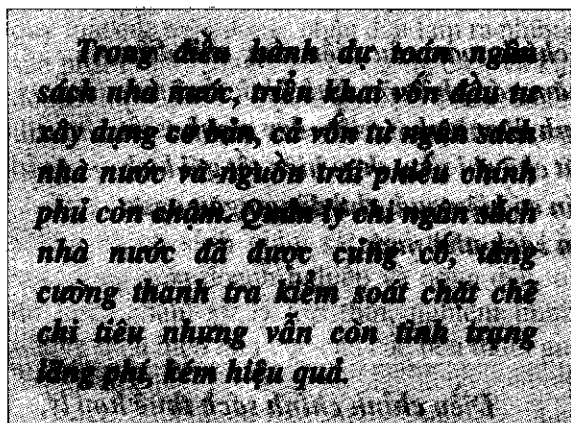 Trong điều hành dự toán ngân
sách nhà nước, triển khai vốn đầu tư
xây dựng cơ bản, cả vốn từ ngân sách
nhà nước và nguồn trái phiếu chính
phủ còn chậm. Quản lý chi ngân sách
nhà nước đã được củng cố, tăng
cường thanh tra kiểm soát chặt chẽ
chi tiêu nhưng vẫn còn tình trạng
lãng phí, kém hiệu quả.